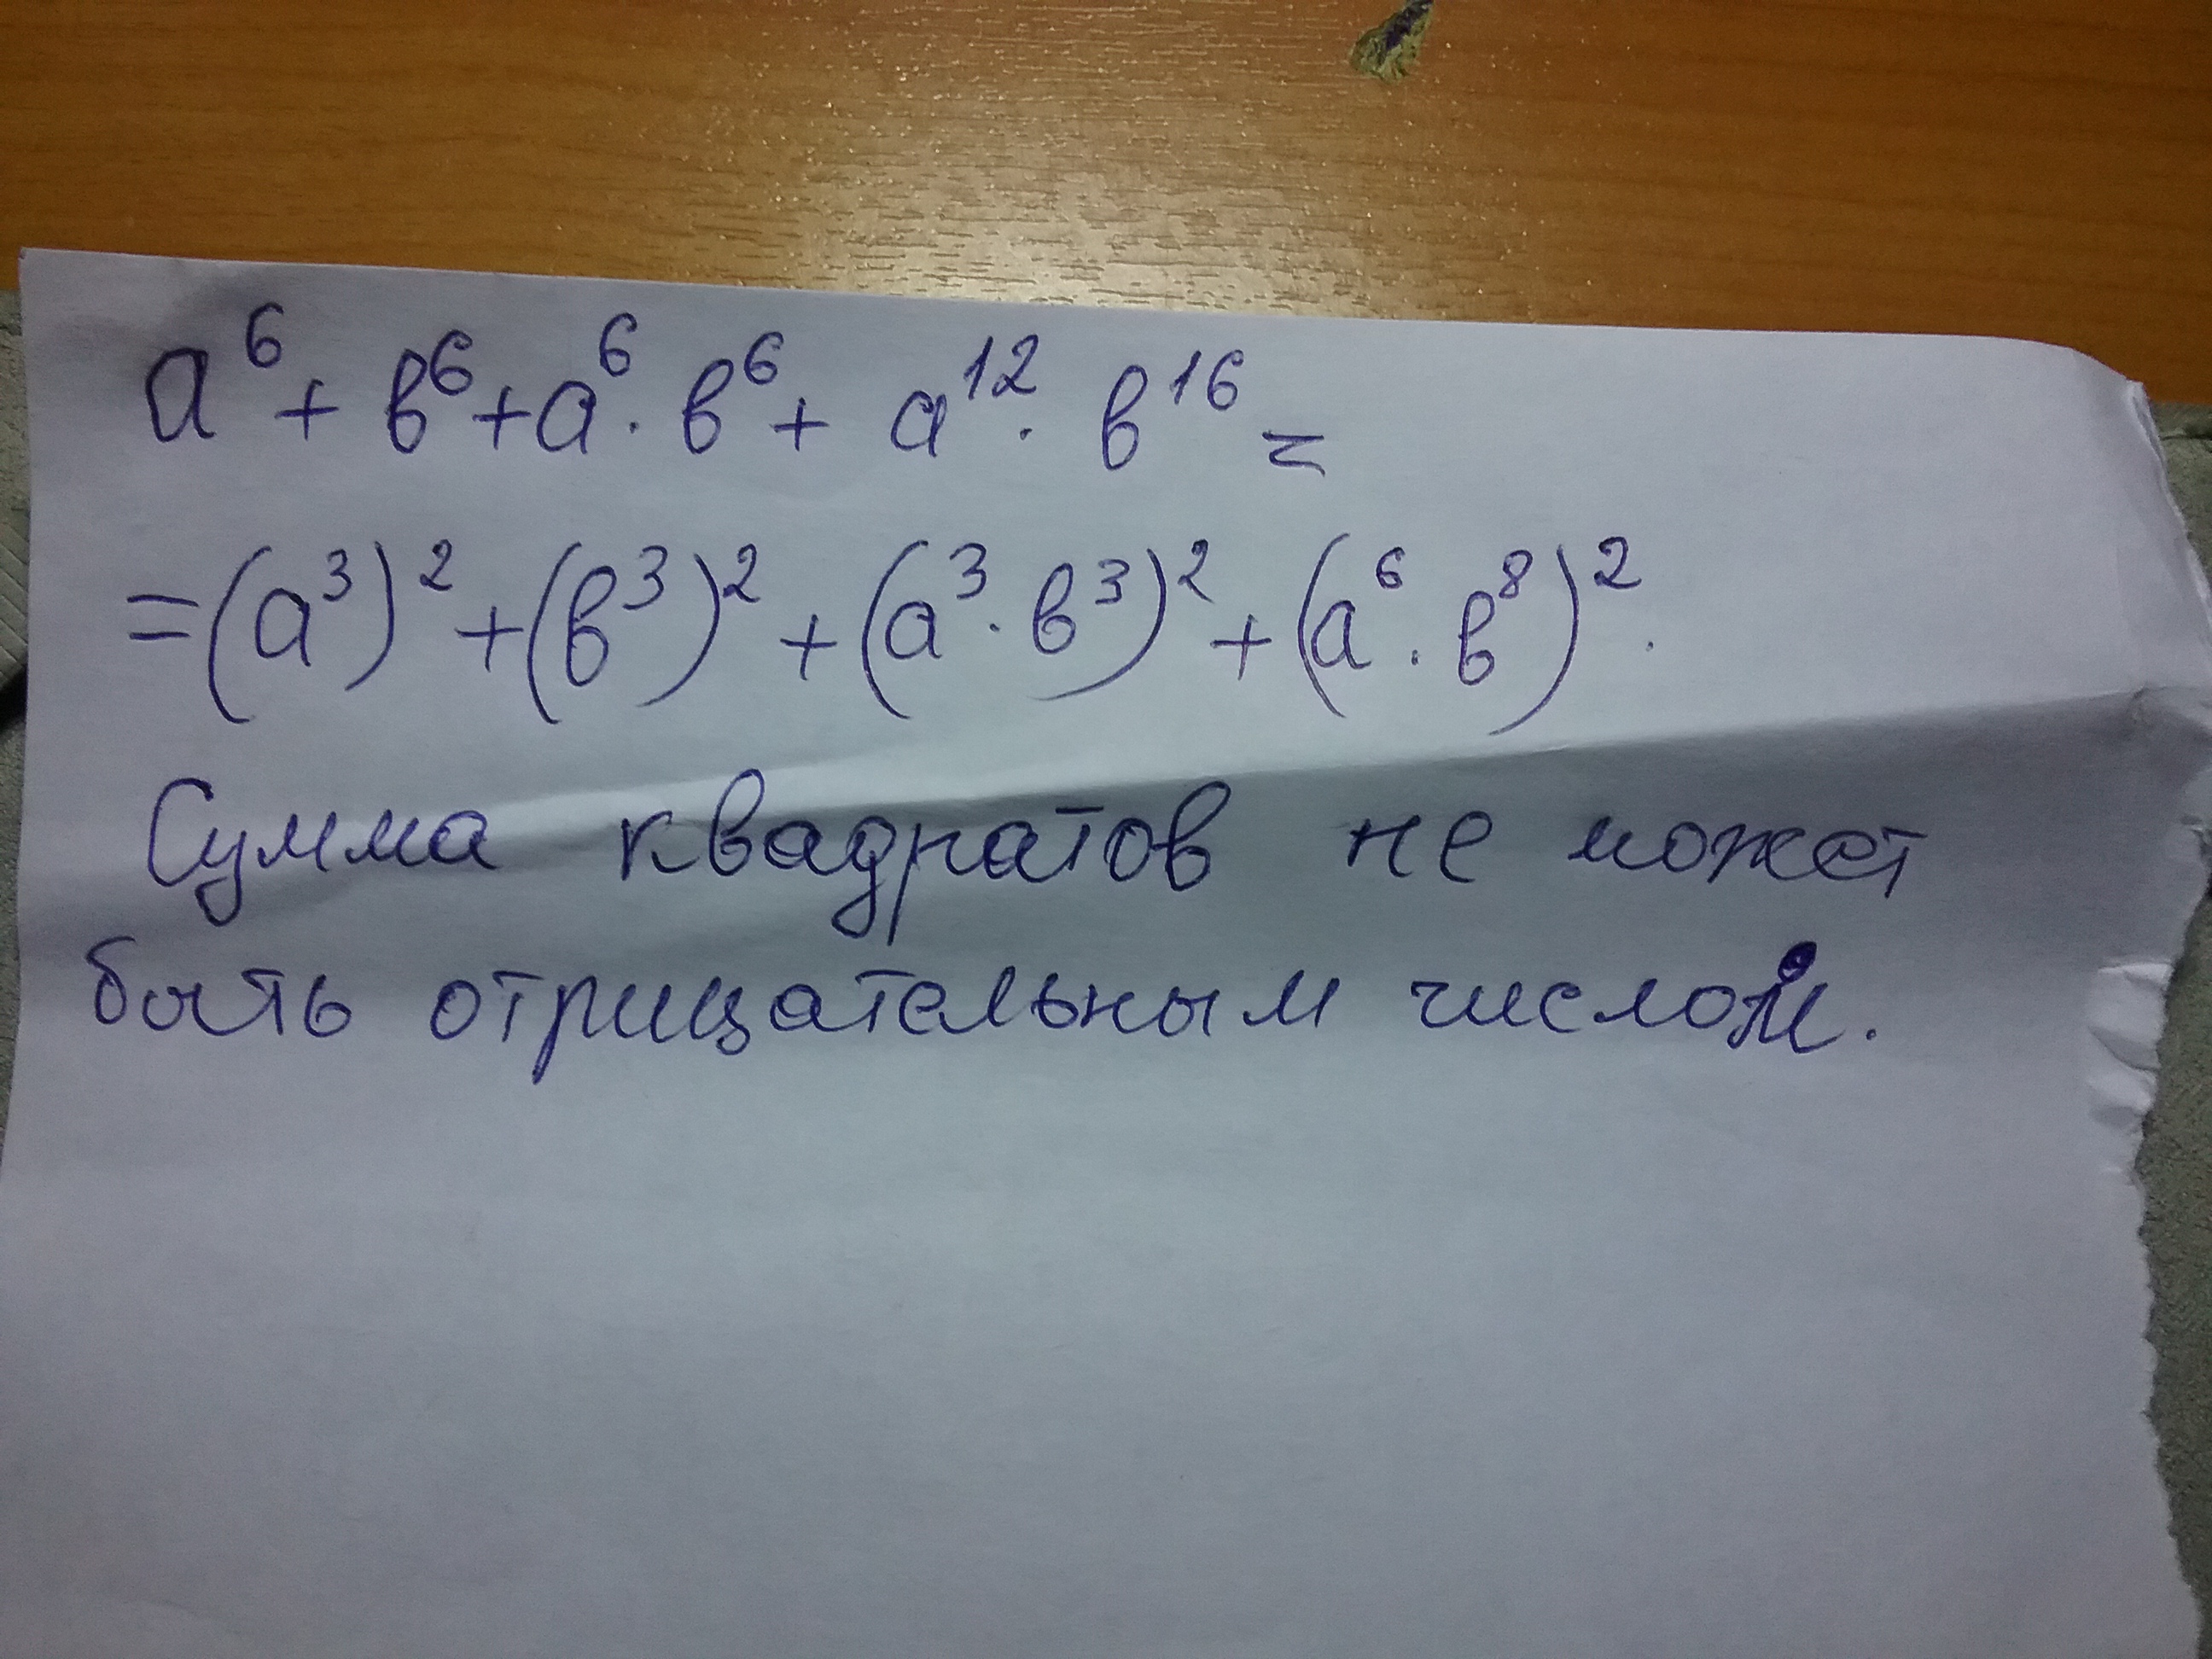 a⁶ + в⁶ + a⁶ · в⁶ + a¹² · в¹⁶ =
= (a³)² + (в³)² + (a³ · в³)² + (a⁶ · в⁸)².
Сумма квадратов не может
быть отрицательным числом.